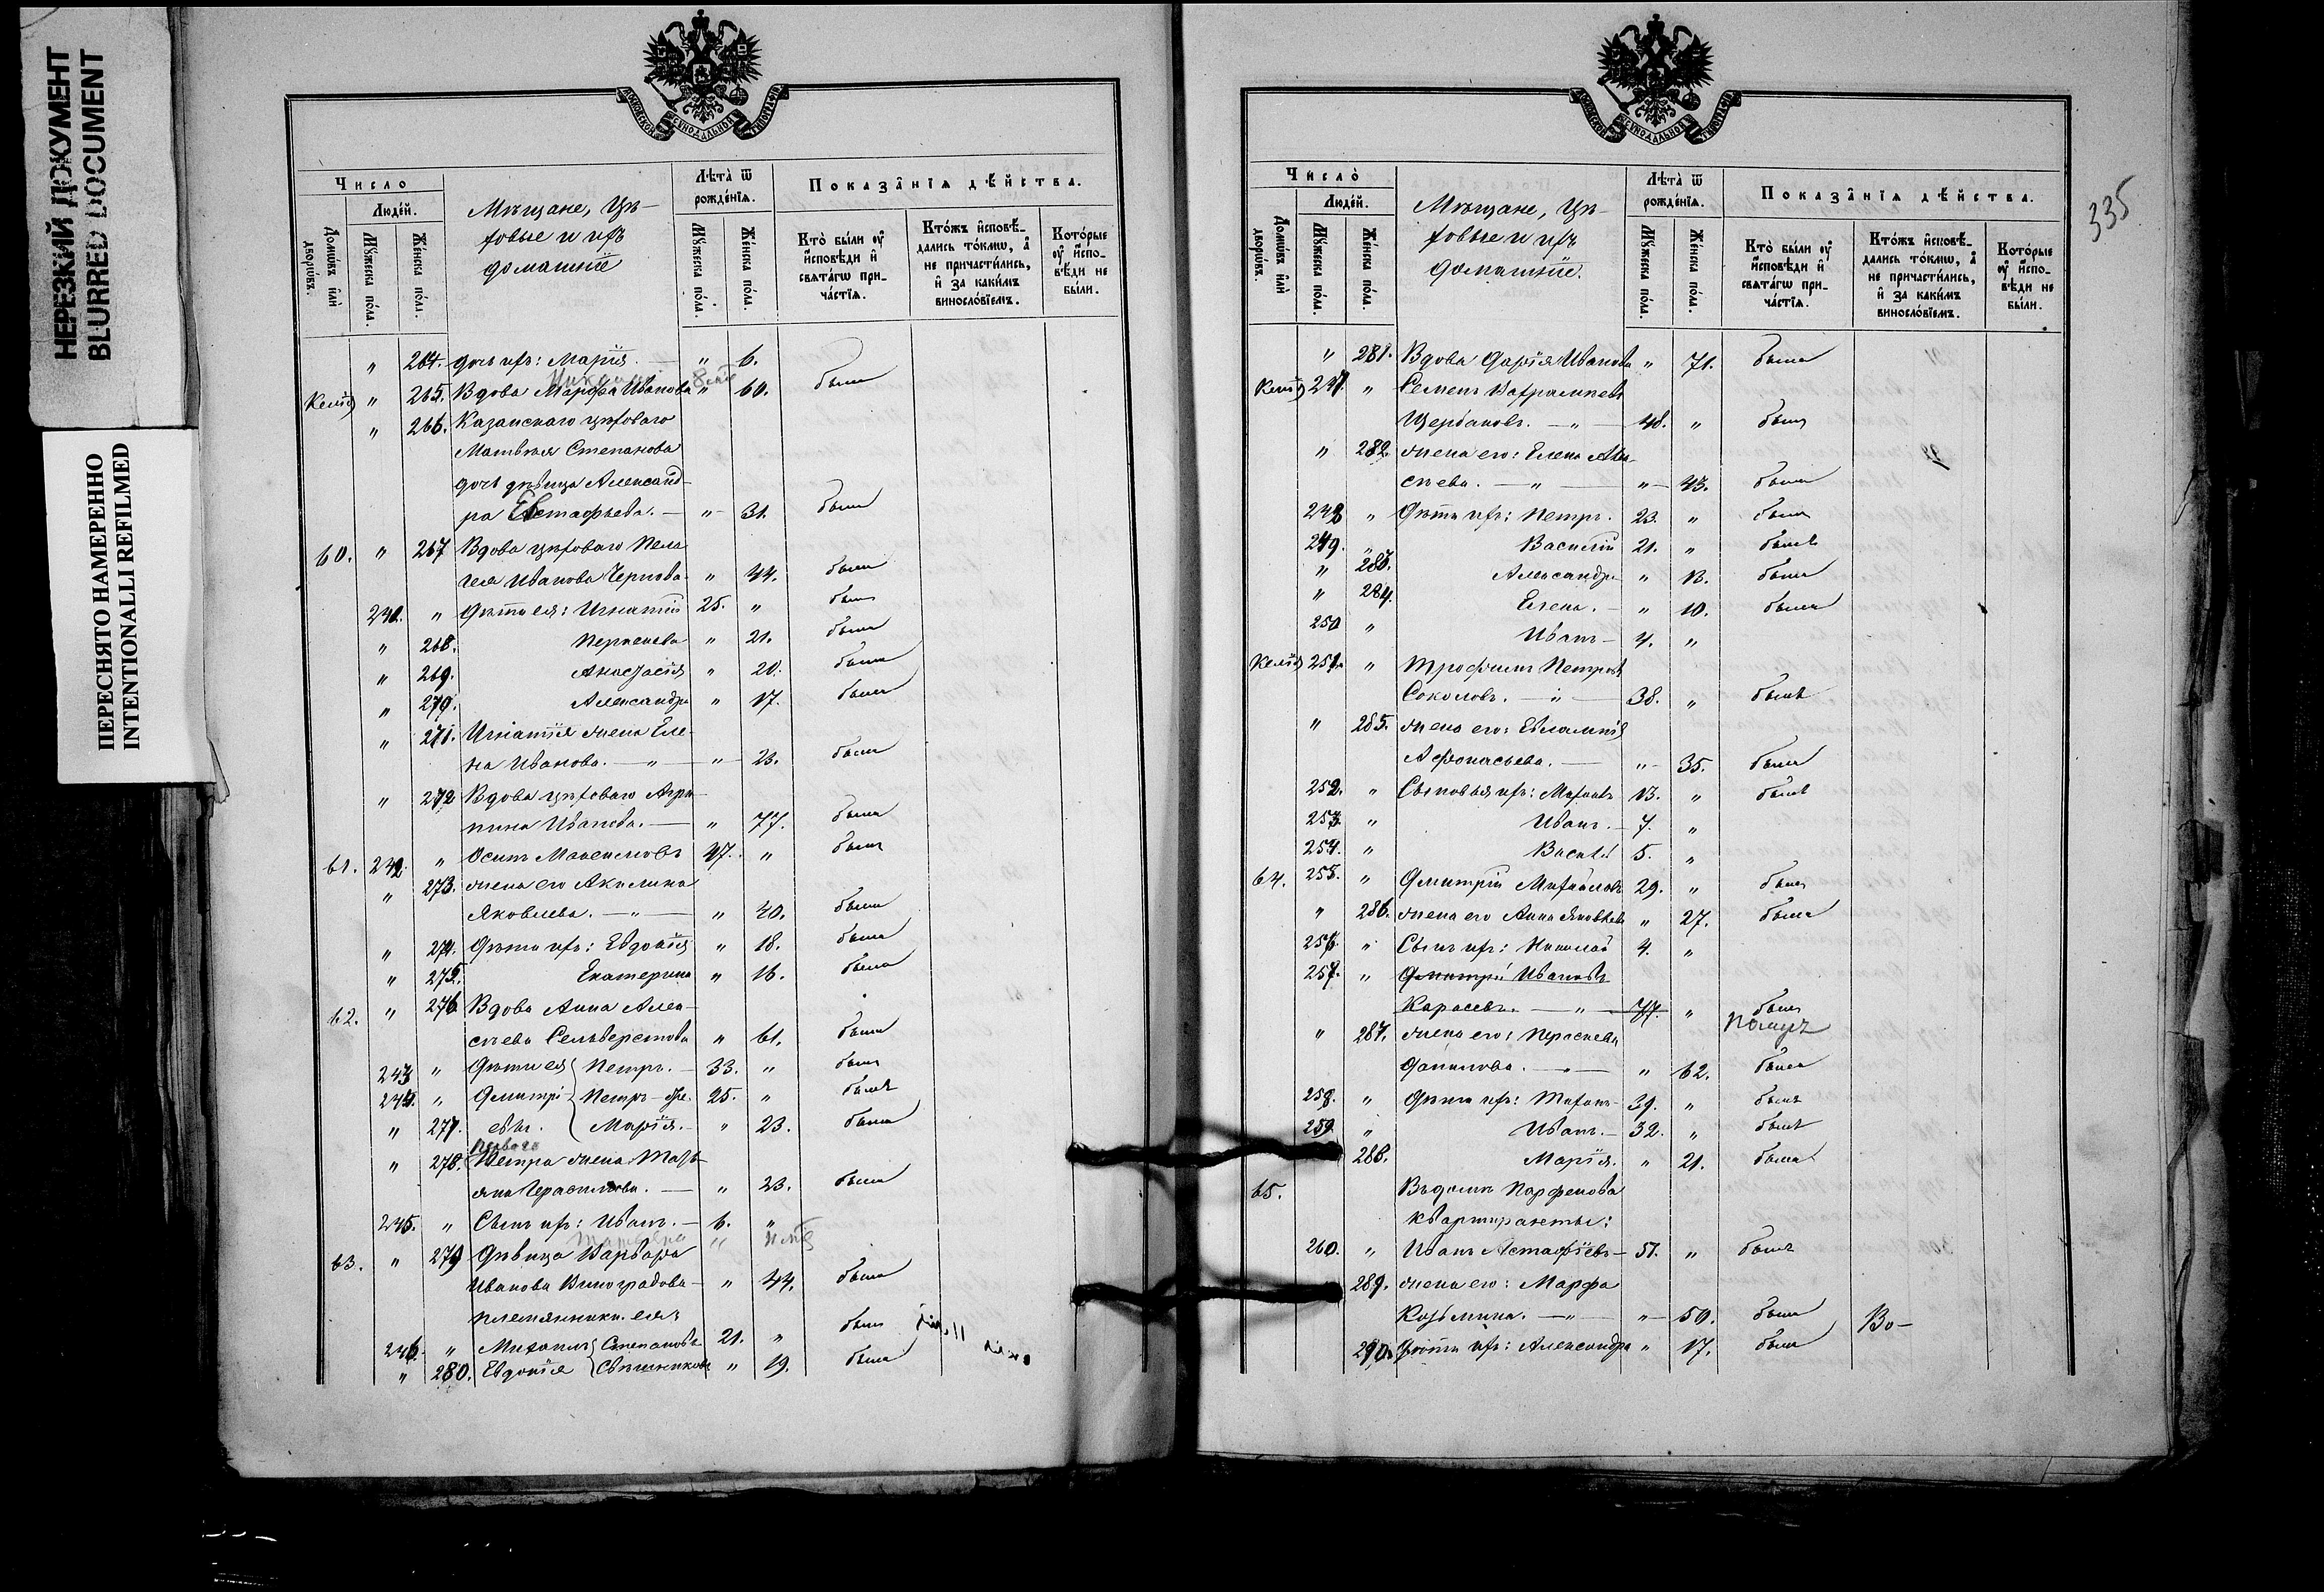 НЕРЕЗКИЙ ДОКУМЕНТ
BLURRED DOCUMENT
ПЕРЕСНЯТО НАМЕРЕННО
INTENTIONALLI REFILMED
МОСКОВСКОЙ СѴНОДАЛЬНОЙ ТИПОГРАФІИ
Число̀
Людéй.
Домѡ́въ и҆лѝ дворѡ́въ.
Мꙋ́жеска по́ла.
Же́нска по́ла.
Мѣщане, Цѣ-
ховые и ихъ
домашніе
Лѣ́та ѿ рожде́нїѧ.
Мꙋ́жеска по́ла.
Же́нска по́ла.
Показа̑нїѧ дѣ́йства.
Кто̀ бы́ли ᲂу҆ и҆сповѣ́ди и҆ свѧта́гѡ при-ча́стїѧ.
Кто́жъ и҆сповѣ́-дались то́кмѡ, а҆ не причасти́лись, и҆ за каки́мъ винослóвїемъ.
Кото́рые ᲂу҆ и҆спо-вѣ́ди не бы́ли.
" 264. дочь ихъ: Марія. — " 6.
Келія " 265. Вдова Марфа Иванова " 60. была
" 266. Казанскаго цѣховаго
Матвѣя Степанова
дочь дѣвица Александ-
ра Евстафьева. — " 31. была
60. " 267 Вдова цѣховаго Пела
гея Иванова Чернова " 44. была
241. " Дѣти ея: Игнатій 25. " былъ
" 268. " 21. была
" 269. Анастасія " 20. была
" 270. Александра " 17. была
" 271. Игнатія жена Еле-
на Иванова. — " — " 23. была
" 272 Вдова цѣховаго Агри-
пина Иванова. — " 77. была
61. 242 " Осипъ Максимовъ 47. " былъ
" 273. жена его Акилина
Яковлева. — " — " 40. была
" 274. Дѣти ихъ: Евдокія " 18. была
" 275. Екатерина " 16. была
62. " 276 Вдова Анна Алек-
сѣева Сельверстова " 61. была
243 " Дѣти ея Петръ. — 33. " былъ
244. " Дмитрі Петръ — 25. " былъ
" 277. евы. Марія. — " 23. была
перваго
" 278. Петра жена Мать
яна Герасимова. — " 23. была
245. " Сынъ ихъ: Иванъ. — 6. "
63. " 279 Дѣвица Варвара
Иванова Виноградова — " 44. была
племянники ея:
246. " Михаилъ Степановы 21. " былъ
" 280. Евдокія Свѣшниковы " 19. была
335
МОСКОВСКОЙ СѴНОДАЛЬНОЙ ТИПОГРАФІИ
Число̀
Людéй.
Домѡ́въ и҆лѝ дворѡ́въ.
Мꙋ́жеска по́ла.
Же́нска по́ла.
Мѣщане, Цѣ-
ховые и ихъ
домашніе.
Лѣ́та ѿ рожде́нїѧ.
Мꙋ́жеска по́ла.
Же́нска по́ла.
Показа̑нїѧ дѣ́йства.
Кто̀ бы́ли ᲂу҆ и҆сповѣ́ди и҆ свѧта́гѡ при-ча́стїѧ.
Кто́жъ и҆сповѣ́-дались то́кмѡ, а҆ не причасти́лись, и҆ за каки́мъ винослóвїемъ.
Кото́рые ᲂу҆ и҆спо-вѣ́ди не бы́ли.
" 281. Вдова Дарія Иванова " 71. была
Келія 247. " Семенъ Варфаламеевъ
Щербаковъ. — " — 48. " былъ
" 282. жена его: Елена Алек-
сѣева. — " — " 43. была
248 " Дѣти ихъ: Петръ. 23. " былъ
249. " Василій 21. " былъ
" 283. Александра " 13. была
" 284. Елена. — " 10. была
250 " Иванъ — 4. "
Келія 251. " Трофимъ Петровъ
Соколовъ. — " — 38. " былъ
" 285. жена его: Евлампія
Афонасьева. — " 35. была
252. " Сыновья ихъ: Михаилъ 13. " былъ
253. " Иванъ. — 7. "
254. " Василій 5. "
64. 255. " Дмитрій Михайловъ 29. " былъ
" 286. жена его Анна Яковлева " 27. была
256. " Сынъ ихъ: Николай 4. "
257. " Дмитрій Ивановъ
Карасевъ. — " — 77. " былъ
" 287. жена его: Параскева
Данилова. — " — " 62. была
258. " Дѣти ихъ: Михаилъ — 39. " былъ
259. " Иванъ. — 32. " былъ
288. Марія. " 21. была
65. Въ домѣ Парфенова
квартиранты:
260. " Иванъ Астафіевъ — 51. " былъ
289. жена его: Марфа
Козьмина. — " — " 50. была
Во-
290. Дѣти ихъ: Александра " 17. была